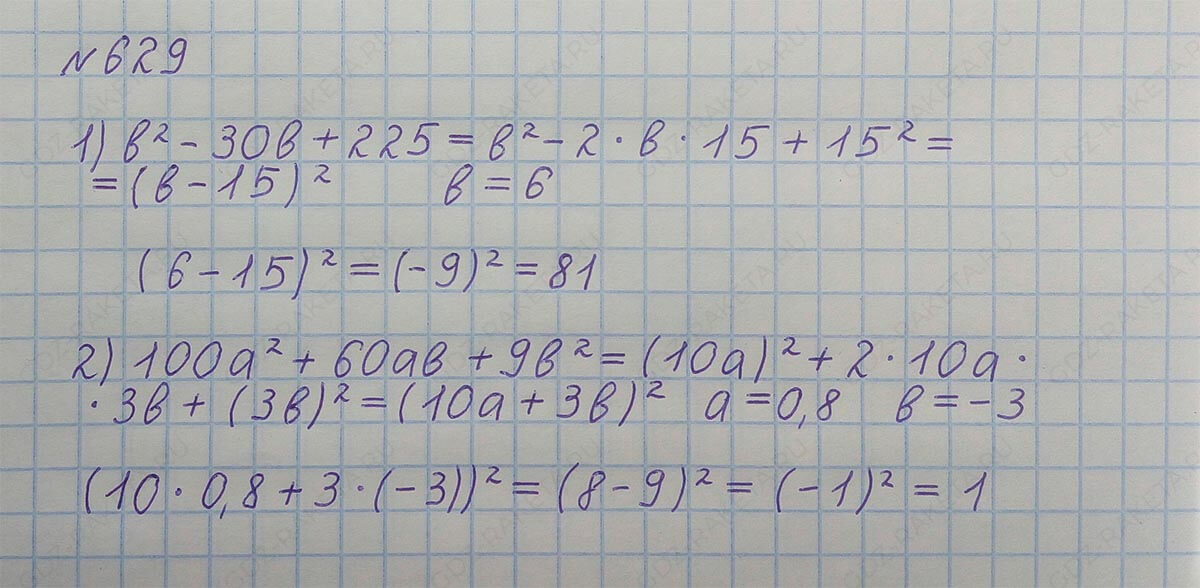 №629
1) в² - 30в + 225 = в² - 2 · в · 15 + 15² =
= (в - 15)² в = 6
(6 - 15)² = (-9)² = 81
2) 100а² + 60ав + 9в² = (10а)² + 2 · 10а ·
· 3в + (3в)² = (10а + 3в)² а = 0,8 в = -3
(10 · 0,8 + 3 · (-3))² = (8 - 9)² = (-1)² = 1
GDZ-RAKETA.RU